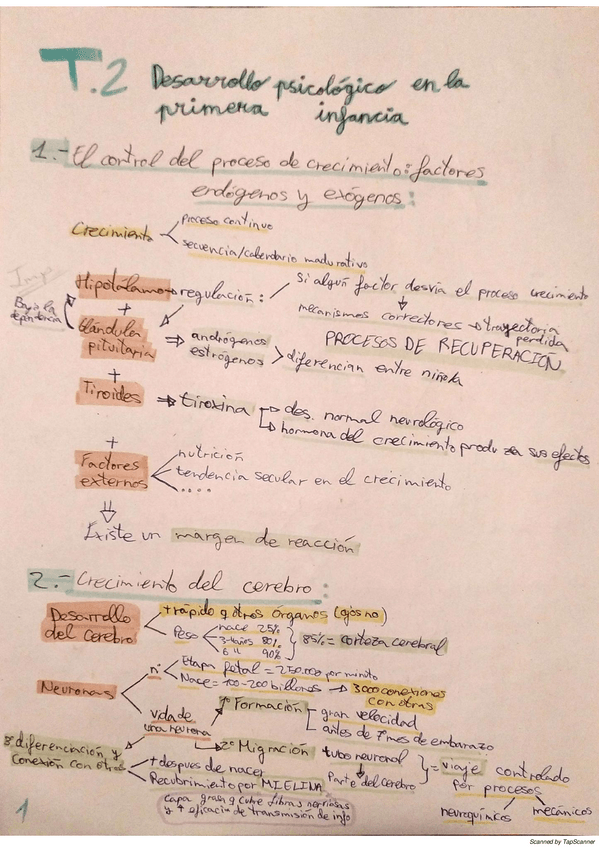 T.2 Desarrollo psicológico en la
primera infancia
1.- El control del proceso de crecimiento: factores
endógenos y exógenos:
Crecimiento
proceso continuo
secuencia/calendario madurativo
Imp
Hipotálamo → regulación:
Si algún factor desvía el proceso crecimiento
mecanismos correctores → trayectoria
perdida
PROCESOS DE RECUPERACIÓN
Bajo la
dependencia
+
Glándula
pituitaria
⇒ andrógenos
estrógenos
> diferencian entre niño/a
+
Tiroides ⇒ tiroxina
→ des. normal neurológico
→ hormona del crecimiento produzca sus efectos
+
Factores
externos
nutrición
tendencia secular en el crecimiento
....
⇓
Existe un margen de reacción
2.- Crecimiento del cerebro:
Desarrollo
del cerebro
+ rápido q otros órganos (ojos no)
Peso
nace 25%
3-4años 80%
6 " 90%
} 85% = corteza cerebral
Neuronas
nº
Etapa fetal = 250.000 por minuto
Nace = 100-200 billones → 3000 conexiones
con otras
vida de
una neurona
1º Formación
gran velocidad
antes de 7º mes de embarazo
2º Migración
tubo neuronal
Parte del cerebro
} = viaje controlado
por procesos
neuroquímicos
mecánicos
3º diferenciación y
conexión con otras
+ despues de nacer
Recubrimiento por MIELINA
capa grasa q cubre fibras nerviosas
y ↑ eficacia de transmisión de info
1
Scanned by TapScanner